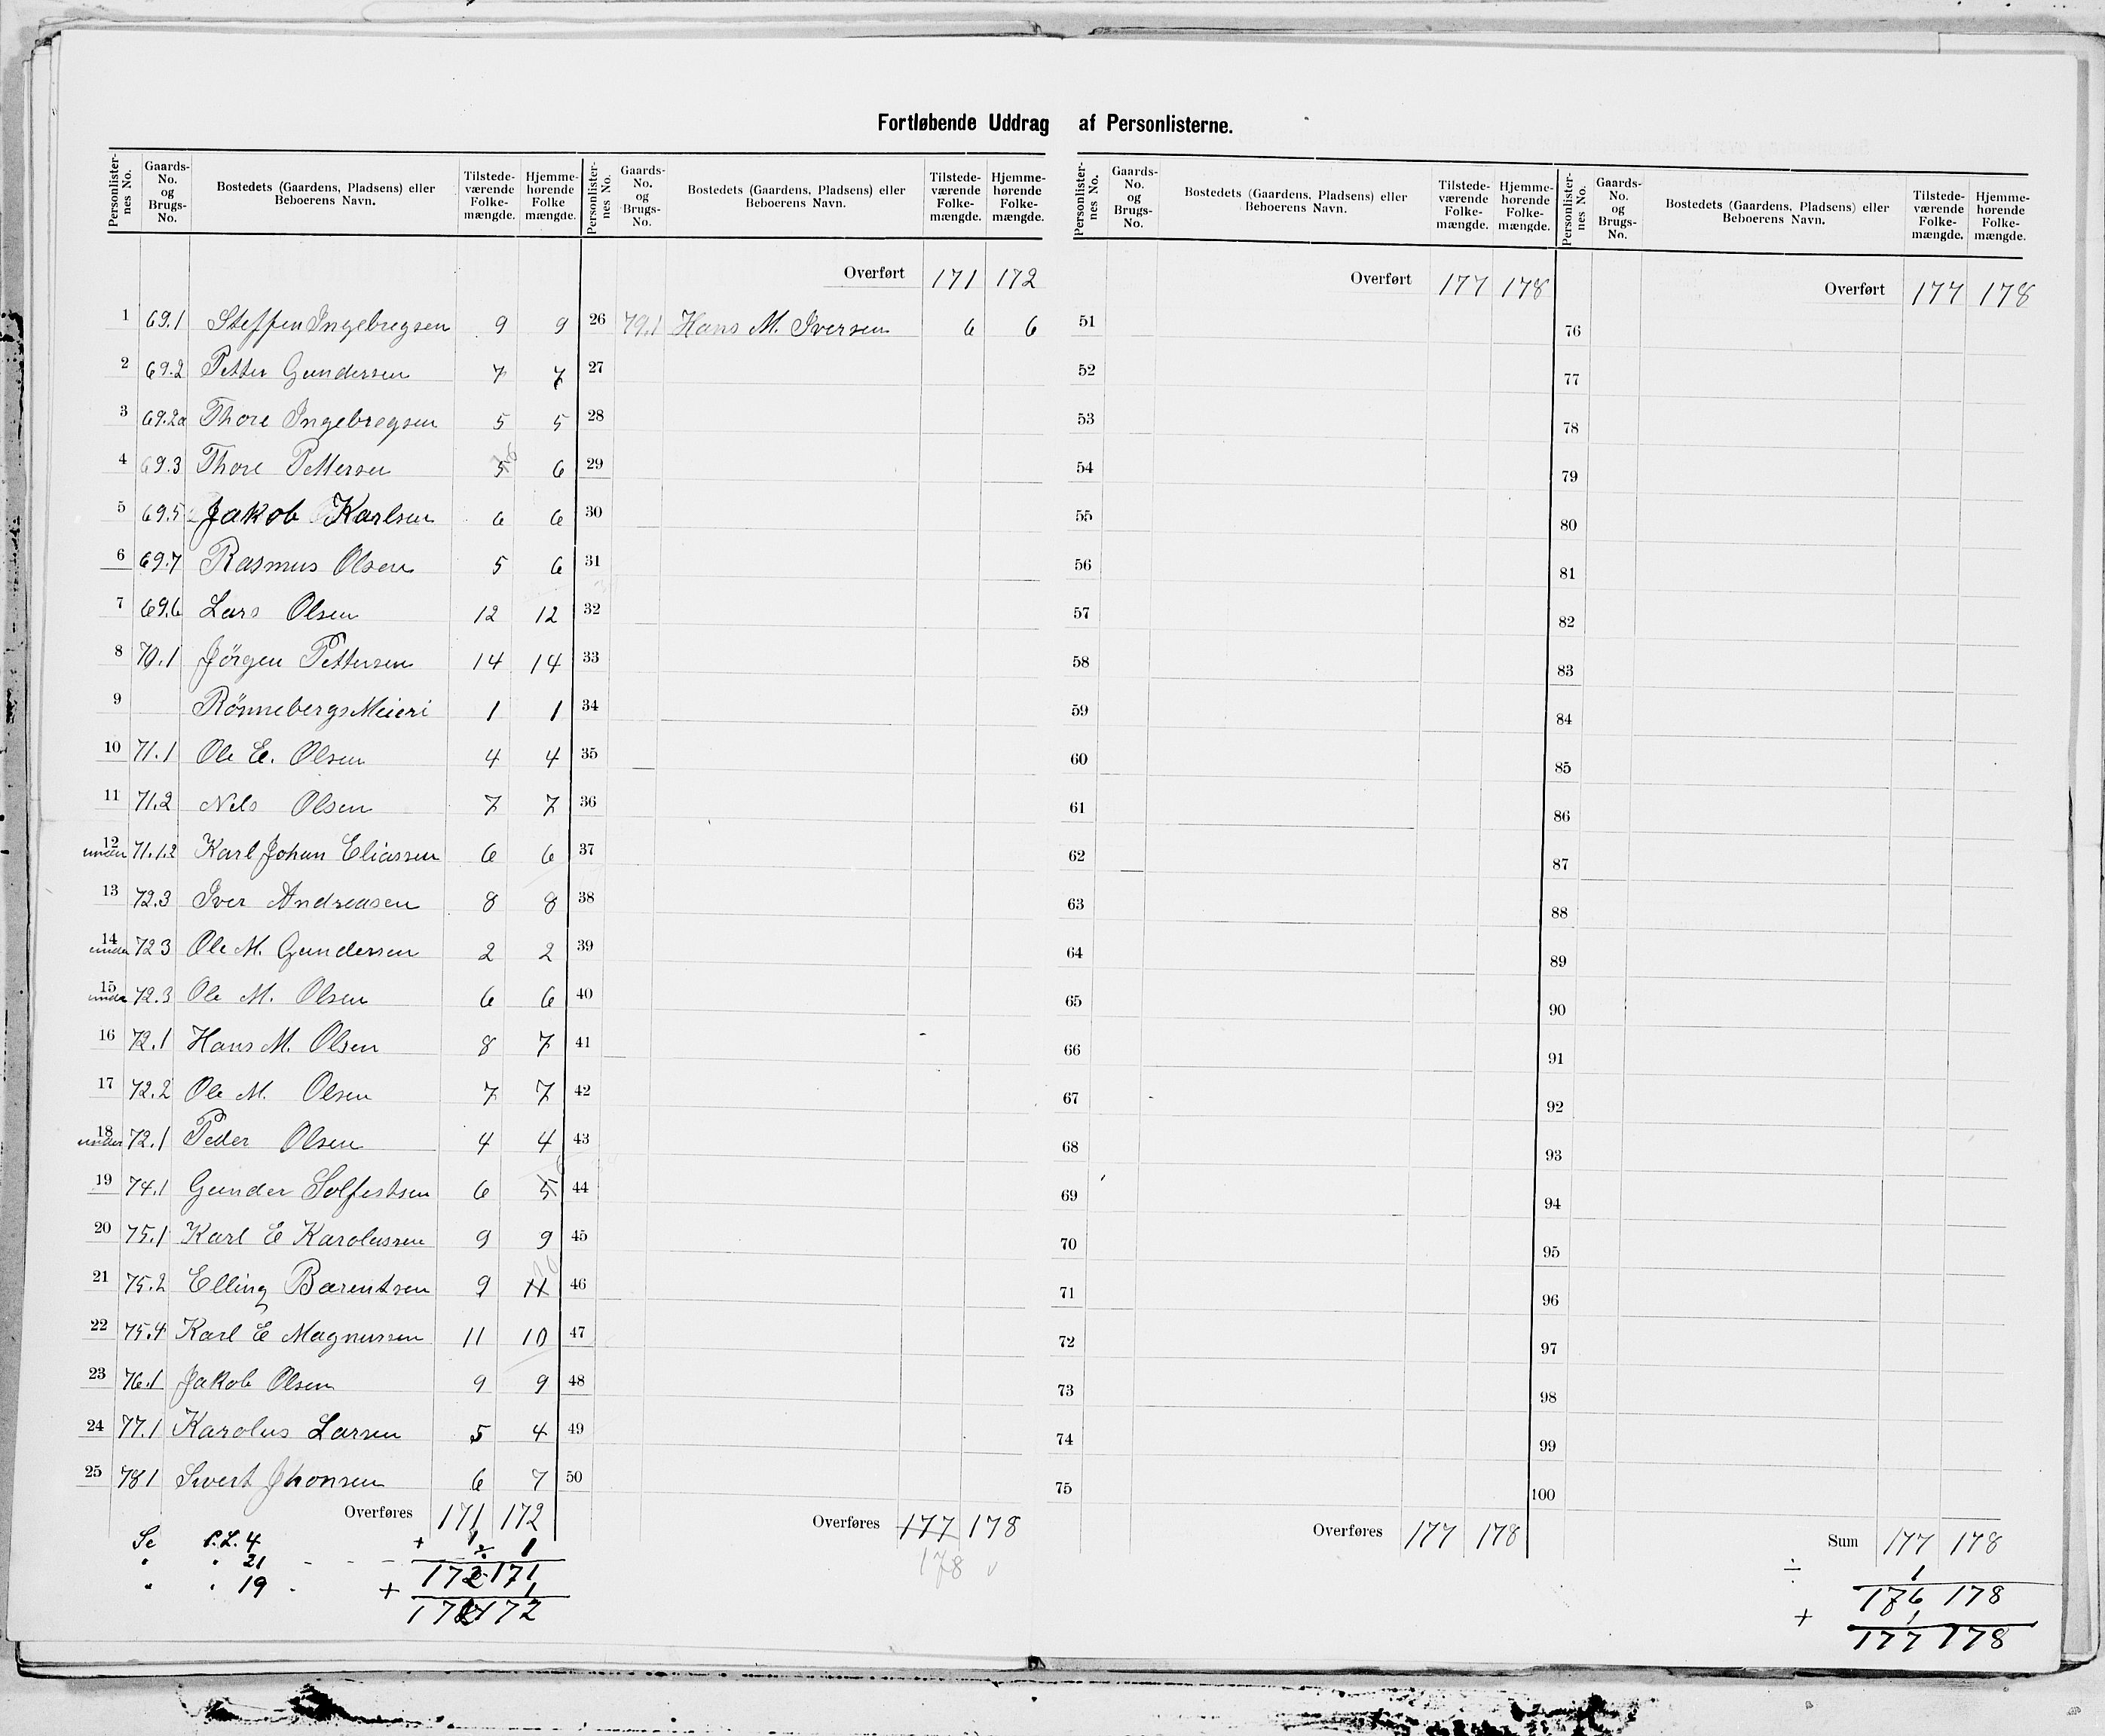 Fortløbende Uddrag af Personlisterne.
Personlister-nes No. Gaards-No. og Brugs-No. Bostedets (Gaardens, Pladsens) eller Beboerens Navn. Tilstede-værende Folke-mængde. Hjemme-hørende Folke mængde.
1 69.1 Steffen Ingebregsen 9 9
2 69.2 Petter Gundersen 7 7
3 69.2a Thore Ingebregsen 5 5
4 69.3 Thore Pettersen 5 6
5 69.5 Jakob Karlsen 6 6
6 69.7 Rasmus Olsen 5 6
7 69.6 Lars Olsen 12 12
8 70.1 Jörgen Pettersen 14 14
9 Rönnebergs Meieri 1 1
10 71.1 Ole E. Olsen 4 4
11 71.2 Nels Olsen 7 7
12 under 71.1.2 Karl Johan Eliassen 6 6
13 72.3 Iver Andreasen 8 8
14 under 72 3 Ole M. Gundersen 2 2
15 under 72.3 Ole M. Olsen 6 6
16 72.1 Hans M. Olsen 8 7
17 72.2 Ole M. Olsen 7 7
18 under 72.1 Peder Olsen 4 4
19 74.1 Gunder Solfestsen 6 5
20 75.1 Karl E Karolussen 9 9
21 75.2 Elling Barentsen 9 11 10
22 75.4 Karl E Magnussen 11 10
23 76.1 Jakob Olsen 9 9
24 77.1 Karolus Larsen 5 4
25 78 1 Sivert Jhonsen 6 7
Overføres 171 172
Se P.L. 4 + 1 ÷ 1
" " 21 - - - 172 171
" " 19 - + 1
172
Personlister-nes No. Gaards-No. og Brugs-No. Bostedets (Gaardens, Pladsens) eller Beboerens Navn. Tilstede-værende Folke-mængde. Hjemme-hørende Folke-mængde.
Overført 171 172
26 79.1 Hans M. Iversen 6 6
27
28
29
30
31
32
33
34
35
36
37
38
39
40
41
42
43
44
45
46
47
48
49
50
Overføres 177 178
178
Personlister-nes No. Gaards-No. og Brugs-No. Bostedets (Gaardens, Pladsens) eller Beboerens Navn. Tilstede-værende Folke-mængde. Hjemme-hørende Folke-mængde.
Overført 177 178
51
52
53
54
55
56
57
58
59
60
61
62
63
64
65
66
67
68
69
70
71
72
73
74
75
Overføres 177 178
Personlister-nes No. Gaards-No. og Brugs-No. Bostedets (Gaardens, Pladsens) eller Beboerens Navn. Tilstede-værende Folke-mængde. Hjemme-hørende Folke-mængde.
Overført 177 178
76
77
78
79
80
81
82
83
84
85
86
87
88
89
90
91
92
93
94
95
96
97
98
99
100
Sum 177 178
÷ 1
176 178
+ 1
177 178